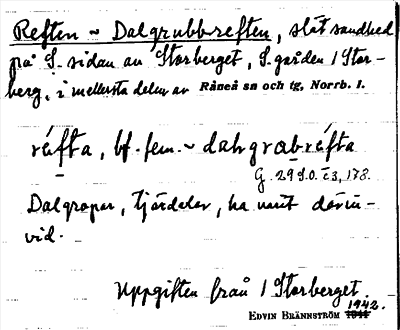 Reften ~ Dalgrubbreften, slät sandhed
på S. sidan av Storberget, S. gården i Stor-
berg, i mellersta delen av Råneå sn och tg, Norrb. l.
réfta, bf. fem. ~ dalgrabréfta
G. 29 S.O. c3, 178.
Dalgropar, tjärdalar, ha varit därin-
vid.
Uppgiften från i Storberget.
1942.
EDVIN BRÄNNSTRÖM 1941